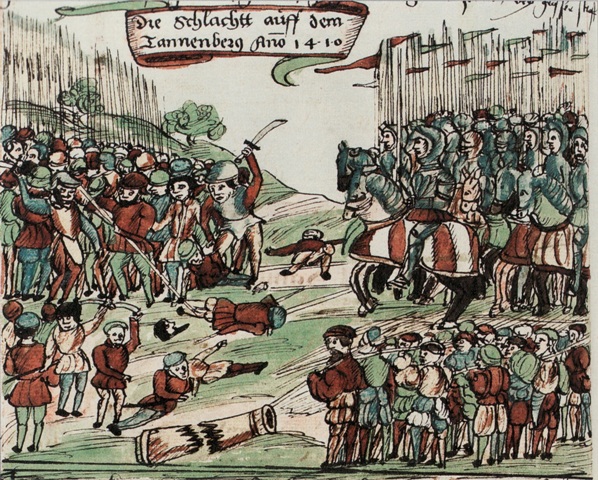 Die Schlachtt auff dem
Tannenberg Año 1410